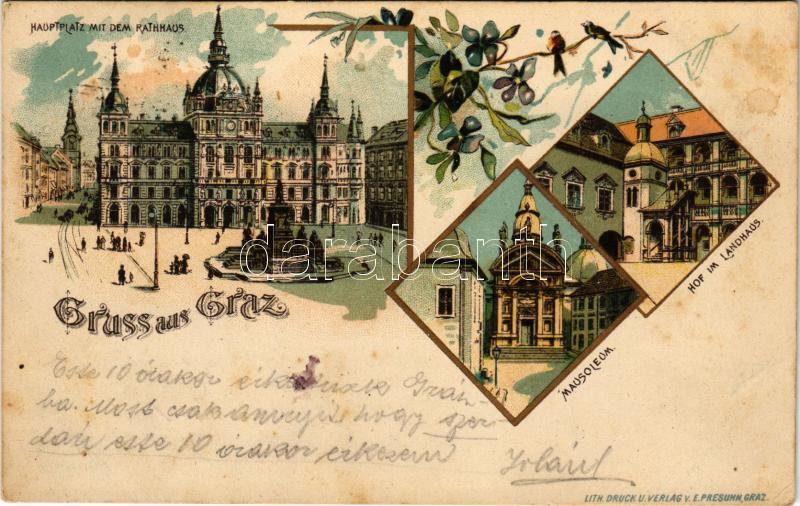 HAUPTPLATZ MIT DEM RATHHAUS.
HOF IM LANDHAUS.
MAUSOLEUM.
darabanth
Gruss aus Graz.
Este 10 órakor érkezünk Gráz-
ba. Most csak annyit, hogy szer-
dán este 10 órakor érkezem
LITH. DRUCK U. VERLAG V. E. PRESUHN, GRAZ.